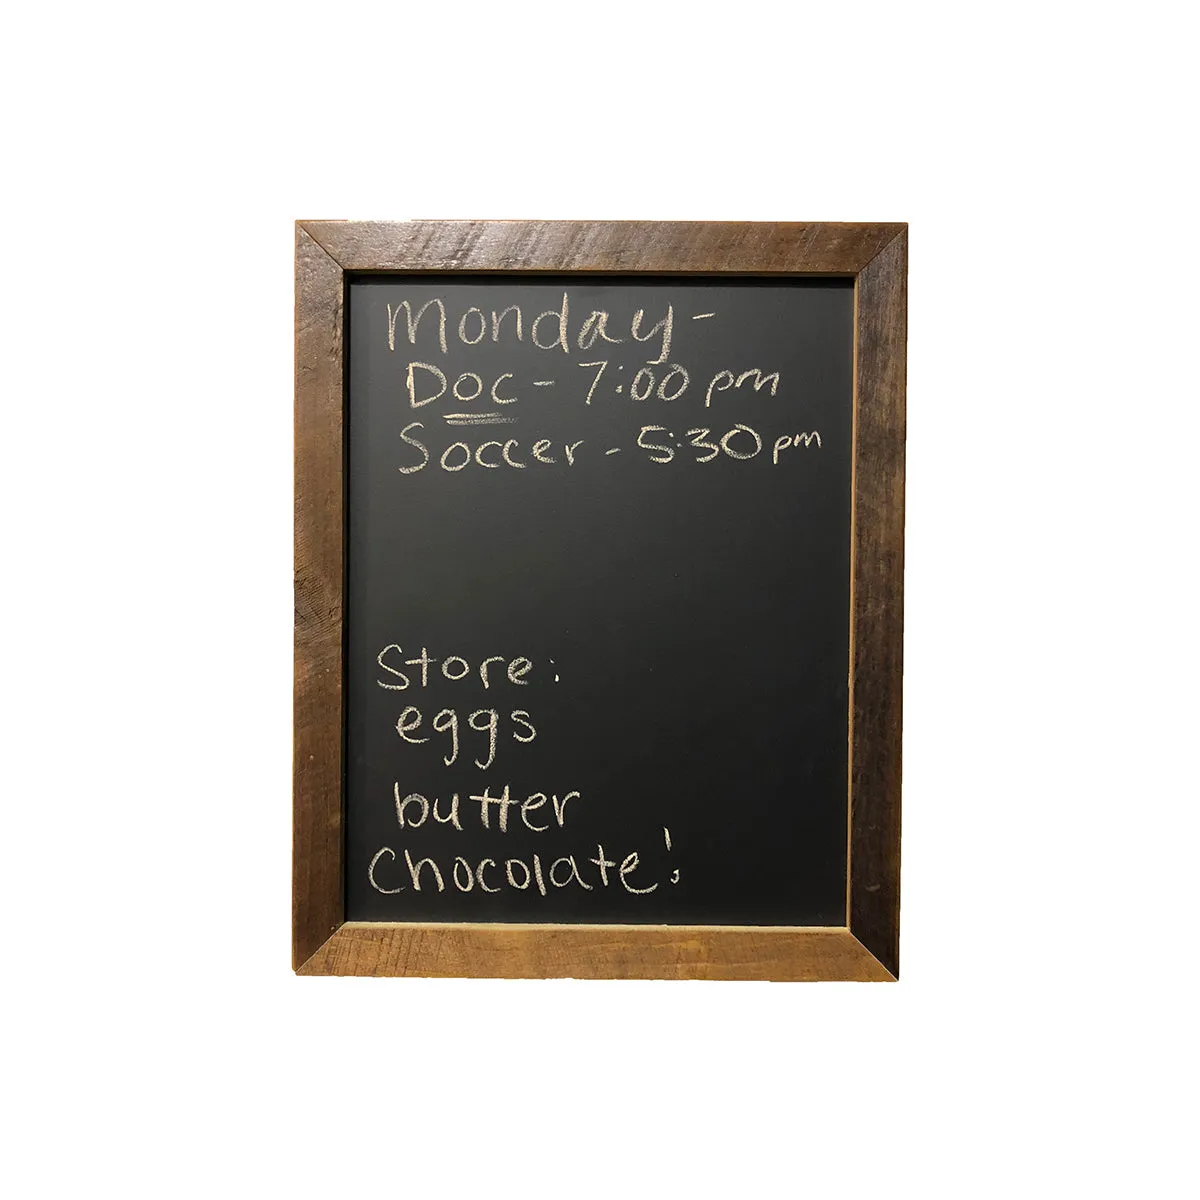 Monday -
Doc - 7:00 pm
Soccer - 5:30 pm
Store:
eggs
butter
Chocolate!